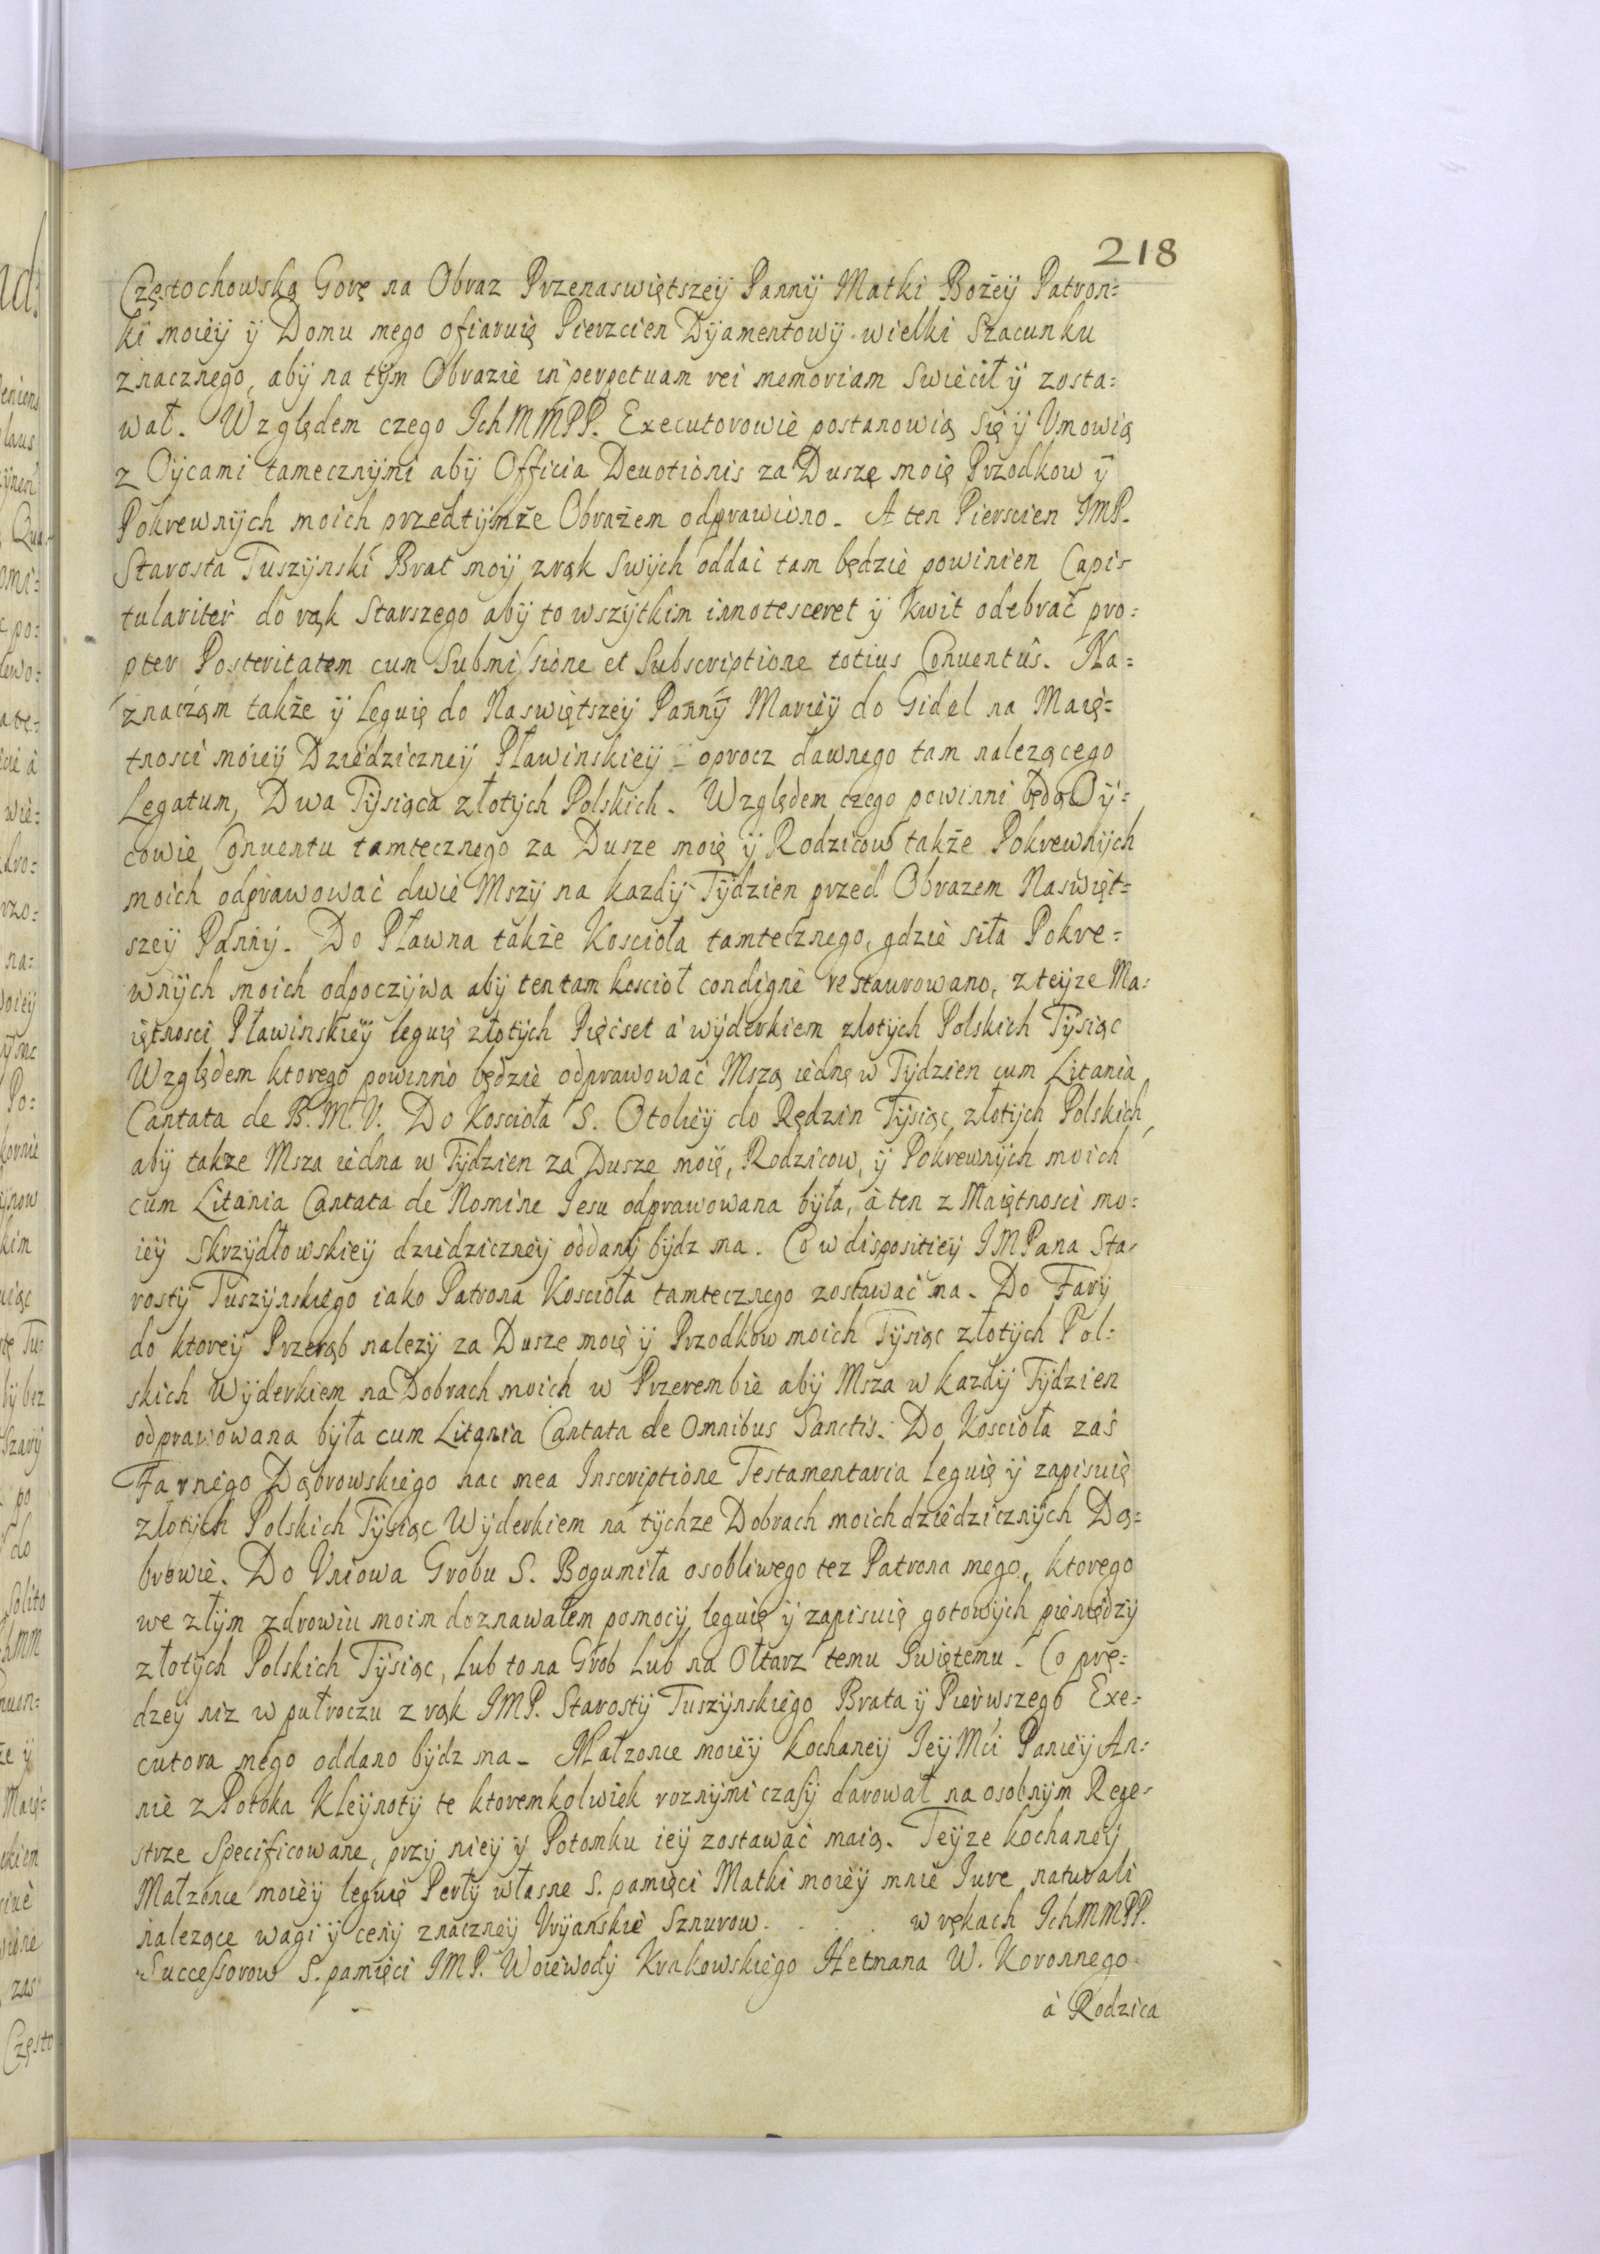 218
Częstochowską Gorę na Obraz Przenaswiętszeÿ Pannÿ Matki Bożeÿ Patron=
ki moieÿ ÿ Domu mego ofiaruię Pierzcien Dyamentowÿ wielki Szacunku
znacznego, abÿ na tÿm Obrazie in perpetuam rei memoriam swiecił ÿ zosta=
wał. Względem czego IchMMPP. Executorowie postanowią się ÿ Vmowią
z Oÿcami tamecznÿmi abÿ Officia Deuotionis za Duszę moię Przodkow ÿ
Pokrewnÿch moich przedtÿmże Obrazem odprawiono. A ten Pierscien IMP.
Starosta Tuszÿnski Brat moÿ zrąk Swÿch oddai tam będzie powinien Capi=
tulariter do rąk Starszego abÿ to wszÿtkim innotesceret ÿ kwit odebrać pro=
pter Posteritatem cum Submissione et Subscriptione totius Conuentûs. Na=
znaczam także ÿ leguię do Naswiętszeÿ Pannÿ Marieÿ do Gidel na Maię=
tnosci moieÿ Dziedziczneÿ Pławinskieÿ oprocz dawnego tam nalezącego
Legatum, Dwa Tÿsiąca złotÿch Polskich. Względem czego powinni będą Oÿ=
cowie Conuentu tamtecznego za Dusze moię ÿ Rodzicow także Pokrewnÿch
moich odprawować dwie Mszÿ na kazdÿ Tÿdzien przed Obrazem Naswięt=
szeÿ Pannÿ. Do Pławna także Koscioła tamtecznego, gdzie siła Pokre=
wnÿch moich odpoczÿwa abÿ ten tam koscioł condignè restaurowano, z teÿze Ma=
iętnosci Pławinskieÿ leguię złotÿch Pięćset a wÿderkiem złotÿch Polskich Tÿsiąc
Względem ktorego powinno będzie odprawować Mszą iednę w Tÿdzien cum Litania
Cantata de B. M. V. Do Koscioła S. Otolieÿ do Rędzin Tÿsiąc złotÿch Polskich,
abÿ takze Msza iedna w Tÿdzien za Dusze moię, Rodzicow, ÿ Pokrewnÿch moich
cum Litania Cantata de Nomine Iesu odprawowana bÿła, à ten z Maiętnosci mo=
ieÿ Skrzÿdłowskieÿ dziedziczneÿ oddanÿ bÿdz ma. Co w dispositieÿ IMPana Sta=
rostÿ Tuszÿnskiego iako Patrona Koscioła tamtecznego zostawać ma. Do Farÿ
do ktoreÿ Przerąb nalezÿ za Dusze moię ÿ Przodkow moich Tÿsiąc złotÿch Pol=
skich Wÿderkiem na Dobrach moich w Przerembie abÿ Msza w kazdÿ Tÿdzien
odprawowana bÿła cum Litania Cantata de Omnibus Sanctis. Do Koscioła zaś
Farnego Dąbrowskiego hac mea Inscriptione Testamentaria leguię ÿ zapisuię
złotÿch Polskich Tÿsiąc Wÿderkiem na tÿchze Dobrach moich dziedzicznÿch Dą=
browie. Do Vniowa Grobu S. Bogumiła osobliwego tez Patrona mego, ktorego
we złÿm zdrowiu moim doznawałem pomocÿ, leguię ÿ zapisuię gotowÿch pieniędzÿ
złotÿch Polskich Tÿsiąc, lub to na Grob lub na Ołtarz temu Swiętemu. Co prę=
dzeÿ niz w pułroczu z rąk IMP. Starostÿ Tuszÿnskiego Brata ÿ Pierwszego Exe=
cutora mego oddano bÿdz ma. Małzonce moieÿ kochaneÿ IeÿMći Panieÿ An=
nie z Potoka Kleÿnotÿ te ktoremkolwiek roznÿmi czasÿ darował na osobnÿm Rege=
strze Specificowane, przy nieÿ ÿ Potomku ieÿ zostawać maią. Teÿze kochaneÿ
Małzonce moieÿ leguię Perłÿ własne S. pamięci Matki moieÿ mnie Iure naturali
nalezące wagi ÿ cenÿ znaczneÿ Vrÿanskie Sznurow. . . . . w rękach IchMMPP.
Successorow S. pamięci IMP. Woiewodÿ Krakowskiego Hetmana W. Koronnego
à Rodzica